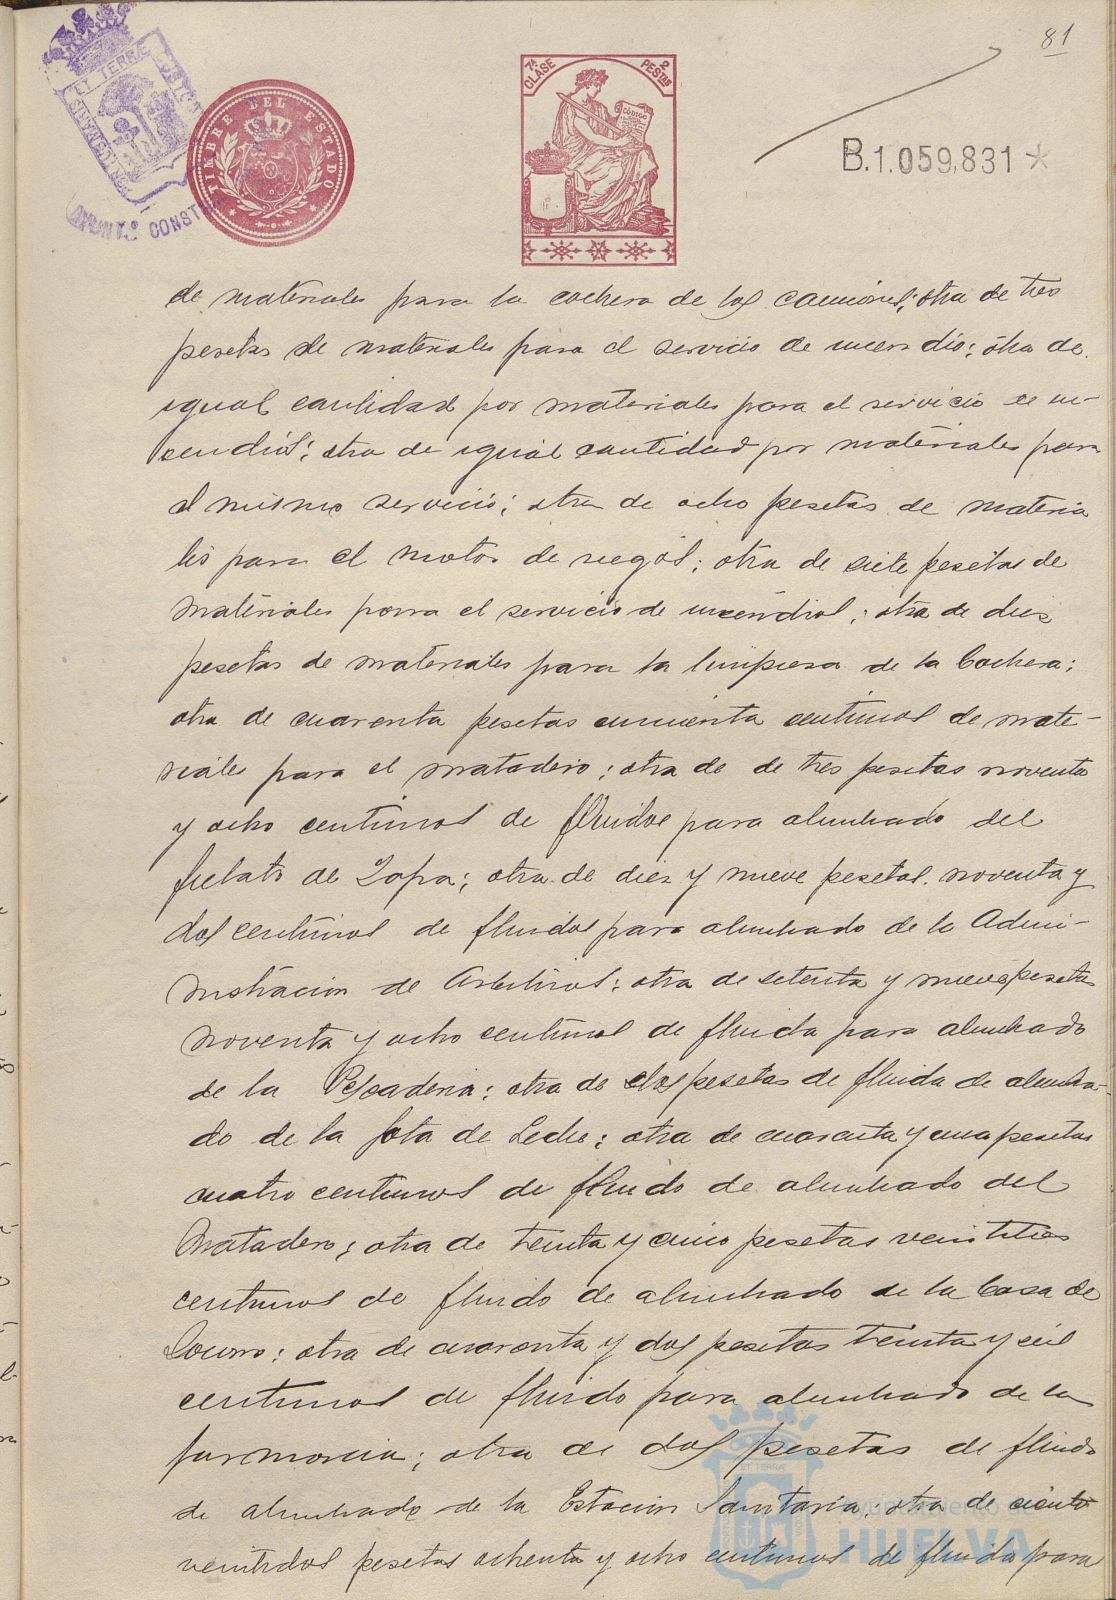 81
PORTUS MARIS ET TERRÆ CUSTODIA
AYUNT.º CONST
TIMBRE DEL ESTADO
7ª CLASE 2 PESTAS
CÓDIGO
B.1.059,831 *
de materiales para la cochera de los camiones; otra de tres
pesetas de materiales para el servicio de incendio; otra de
igual cantidad por materiales para el servicio de in-
cendios; otra de igual cantidad por materiales para
el mismo servicio; otra de ocho pesetas de materia
les para el motor de riegos; otra de siete pesetas de
materiales para el servicio de incendios; otra de diez
pesetas de materiales para la limpiesa de la Cochera;
otra de cuarenta pesetas cincuenta centimos de mate-
riales para el matadero; otra de de tres pesetas noventa
y ocho centimos de fluidos para alumbrado del
fielato de Zapa; otra de diez y nueve pesetas noventa y
dos centimos de fluidos para alumbrado de la Admi-
nistración de Arbitrios; otra de setenta y nueve pesetas
noventa y ocho centimos de fluido para alumbrado
de la Pescaderia; otra de dos pesetas de fluido de alumbra-
do de la Gota de Leche; otra de cuarenta y una pesetas
cuatro centimos de fluido de alumbrado del
Matadero; otra de treinta y cinco pesetas veintitres
centimos de fluido de alumbrado de la Casa de
Socorro; otra de cuarenta y dos pesetas treinta y seis
centimos de fluido para alumbrado de la
farmacia; otra de dos pesetas de fluido
de alumbrado de la Estacion Sanitaria; otra de ciento
veintidos pesetas ochenta y ocho centimos de fluido para
Ayuntamiento de
HUELVA